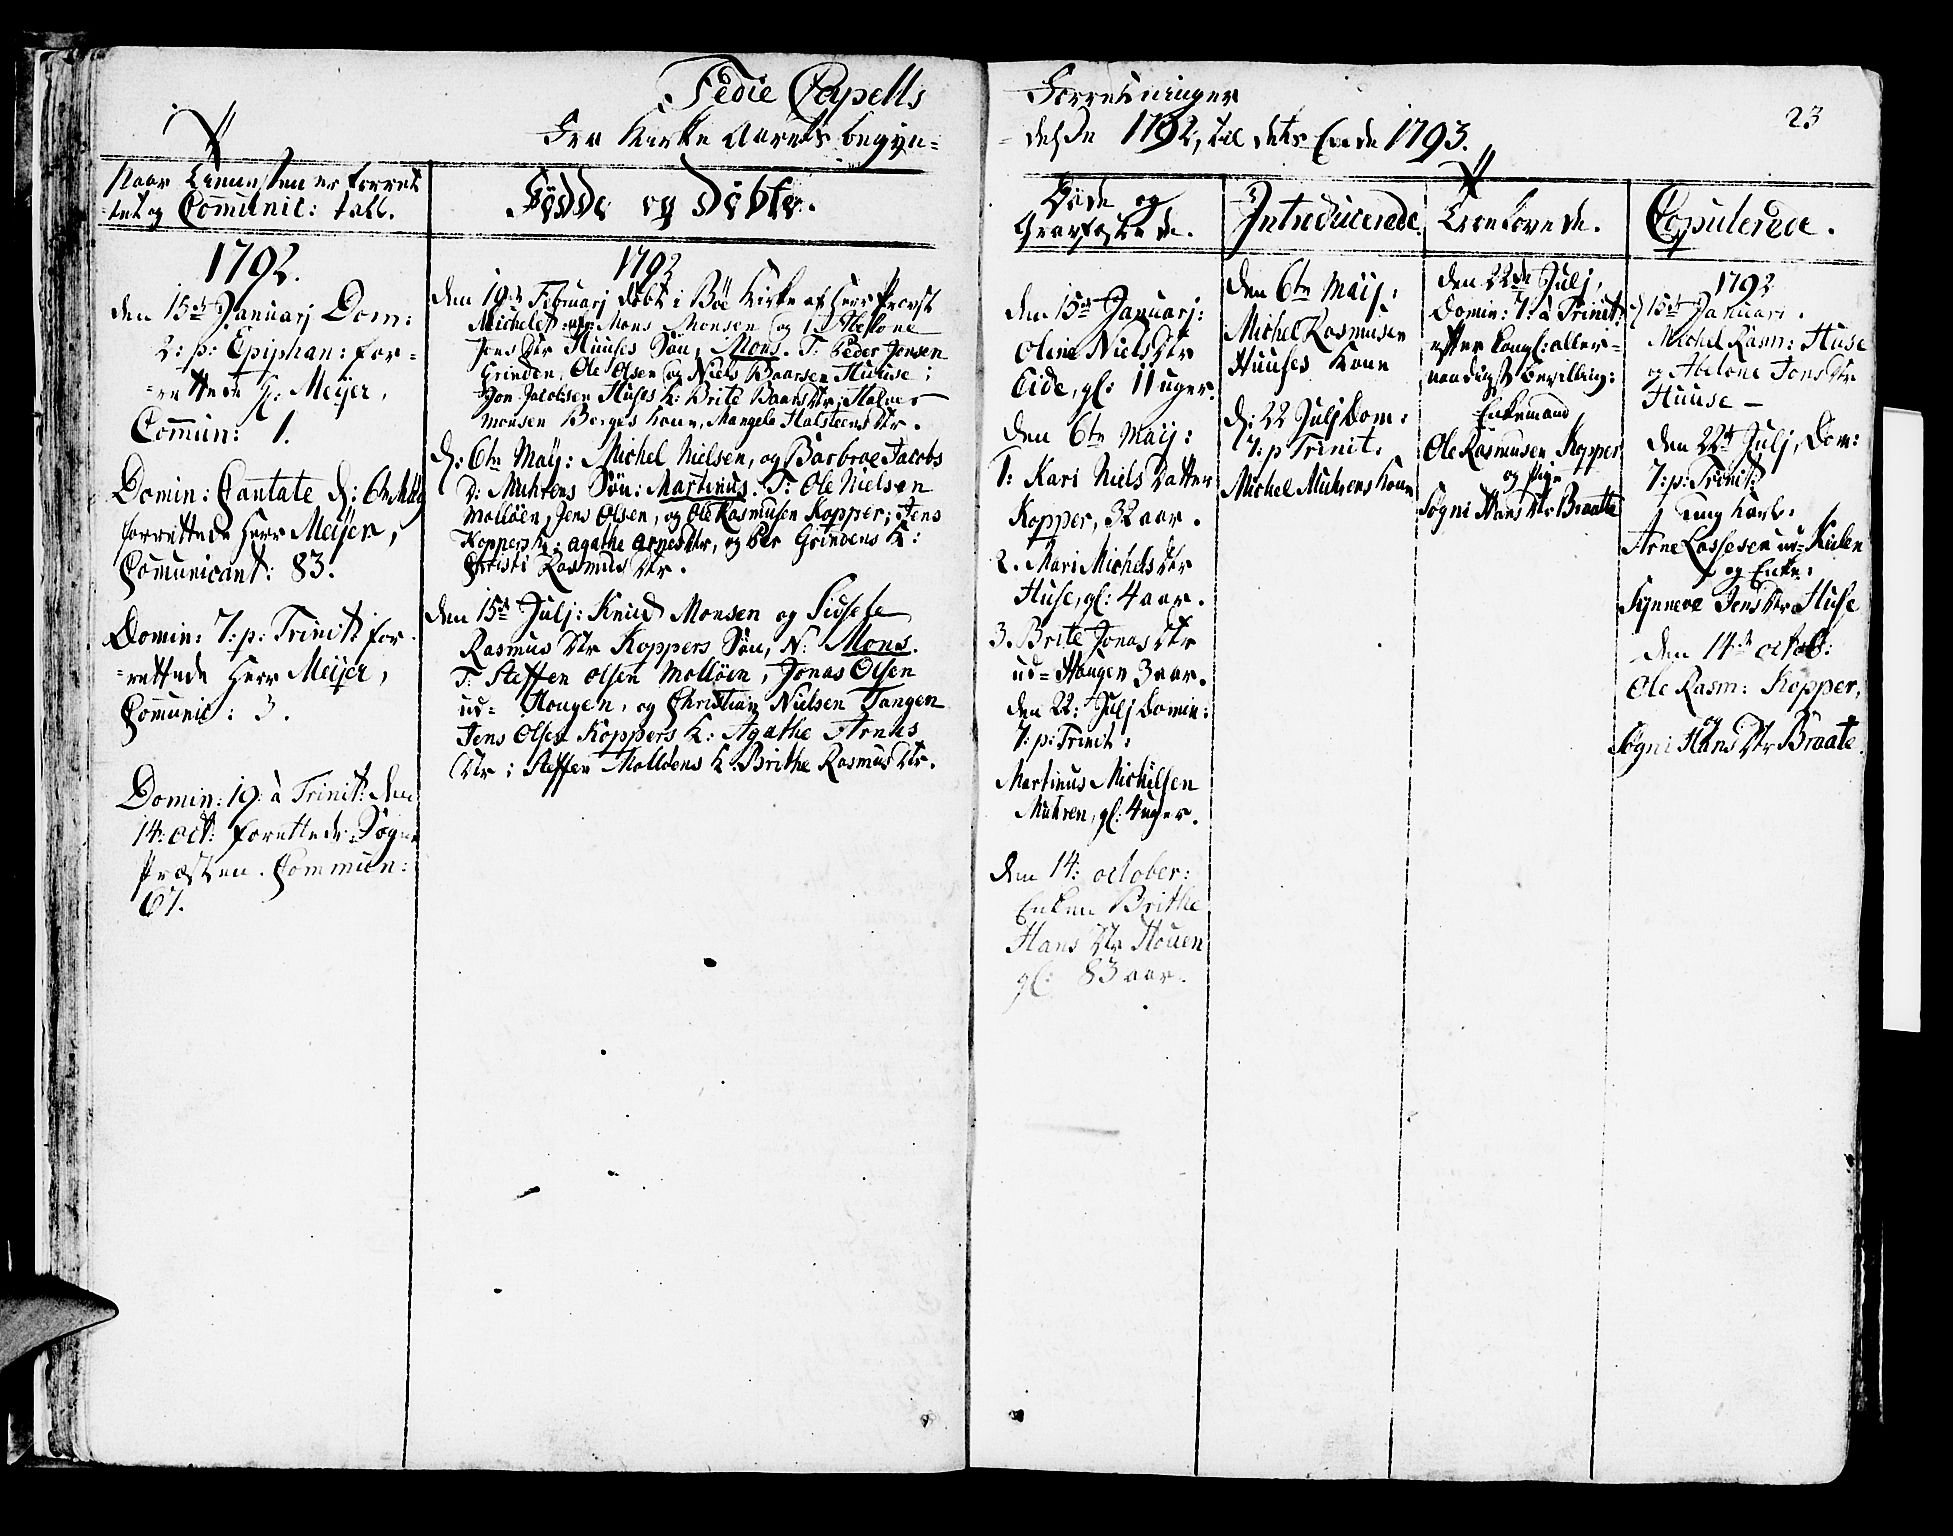 Fedie Capells
Forretninger
23
Fra Kirke Aarets begyn=
=delse 1792, til dets Ende 1793.
Naar Tienesten er forret
tet og Com̄unic: tall.
1792.
den 15de Januarj Dom:
2: p: Epiphan: for=
=rettede H: Meijer,
Com̄un: 1.
Domin: Cantate d: 6te Maij
forrettede Herr Meijer,
Comunicant: 83.
Domin: 7: p: Trinit: for=
=rettede Herr Meijer,
Com̄unic: 3.
Domin: 19: à Trinit: den
14: oct: forettede Sogne
Præsten. Commun:
67.
Fødde og Døbte.
1792
den 19de Februarj døbt i Böe Kirke af Herr Provst
Michelet Mons Monsen og Abelone
Jens Dtr Huuses Søn, Mons. T: Peder Jensen
Grinden, Ole Olsen og Niels Baarsen Huuse;
Jon Jacobsen Huses K: Brite Baars Dtr; Halvor
Monsen Berges Kone, Mangela Halsteens Dtr.
d: 6te Maij: Michel Nielsen, og Barbroe Jacobs
D: Muhrens Søn: Martinus. T: Ole Nielsen
Molløen, Jens Olsen, og Ole Rasmusen Kopper; Jens
Koppers K: Agathe Arnes Dtr, og Per Grindens K:
Christi Rasmus Dtr.
den 15de Julj: Knud Monsen og Sidsele
Rasmus Dtr Koppers Søn, N: Mons.
T: Steffen Olsen Molløen, Jonas Olsen
ud= Hougen, og Christian Nielsen Tangen
Jens Olsen Koppers K: Agathe Arnes
Dtr; Steffen Molløens K: Brithe Rasmus Dtr.
Døde og
Gravfæstede.
den 15de Januarj:
Oline Niels Dtr
Eide, gl: 11 uger.
den 6te Maij:
1: Kari Niels Datter
Kopper, 32 aar.
2. Mari Michels Dtr
Huse, gl: 4 aar.
3. Brite Jonas Dtr
ud= Haugen 3 aar.
den 22: Julj Domin:
7: p: Trinit:
Martinus Michelsen
Muhren, gl: 4 uger.
den 14: october:
Enken Brithe
Hans Dtr Houen
gl: 83 aar.
Introducerede.
den 6te Maij:
Michel Rasmusen
Huuses Kone
d: 22 Julj Dom:
7: p Trinit:
Michel Muhrens Kone
Troelovede.
den 22de Julj,
Domin: 7: à Trinit:
efter Kongl: aller=
naadigst Bevilling:
Enkemand
Ole Rasmusen Kopper
og Pige
Søgni Hans Dtr Braate
Copulerede.
1792
d 15de Januari.
Michel Rasm: Huse
og Abelone Jons Dtr
Huuse —
den 22de Julj, Dom:
7: p: Trinit:
ung Karl:
Arne Lassesen ud= Kielen
og Enke:
Synneve Jens Dtr Huse
den 14de octob:
Ole Rasm: Kopper,
og
Søgni Hans Dtr Braate.